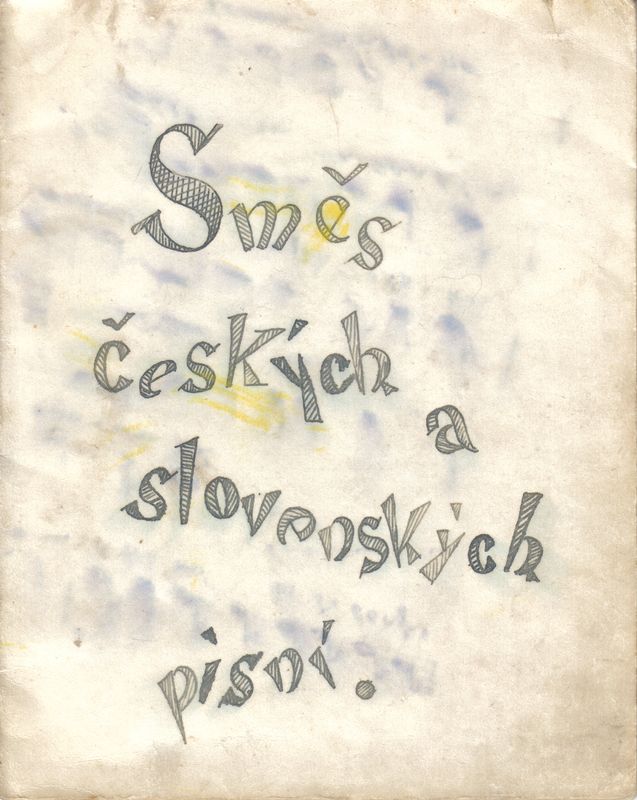 Směs
českých
a
slovenských
písní.